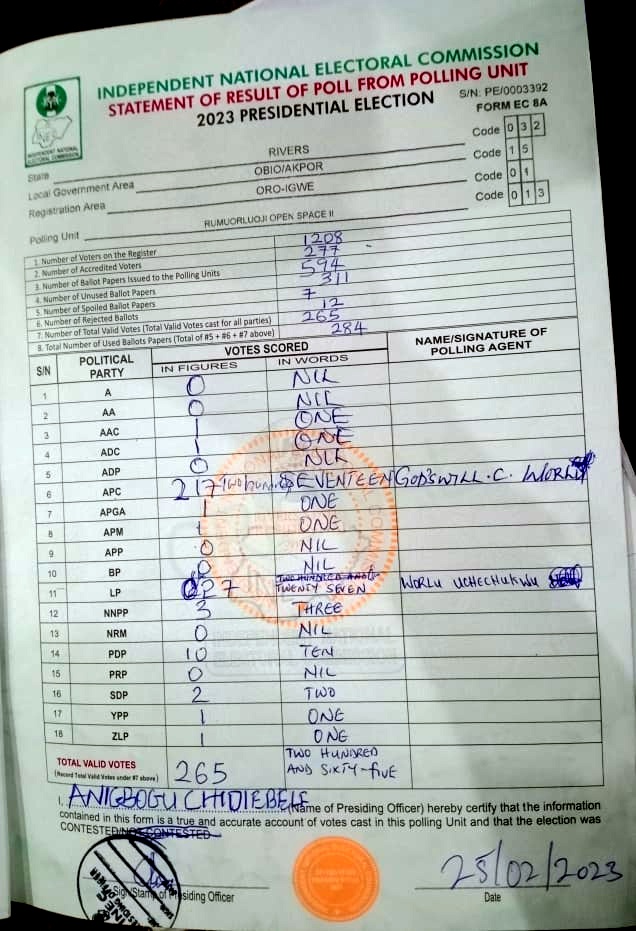 INDEPENDENT NATIONAL ELECTORAL COMMISSION
STATEMENT OF RESULT OF POLL FROM POLLING UNIT
2023 PRESIDENTIAL ELECTION
S/N: PE/0003392
FORM EC 8A
INDEPENDENT NATIONAL ELECTORAL COMMISSION
State RIVERS Code 0 3 2
Local Government Area OBIO/AKPOR Code 1 5
Registration Area ORO-IGWE Code 0 1
Polling Unit RUMUORLUOJI OPEN SPACE II Code 0 1 3
1. Number of Voters on the Register 1208
2. Number of Accredited Voters 277
3. Number of Ballot Papers Issued to the Polling Units 594
4. Number of Unused Ballot Papers 311
5. Number of Spoiled Ballot Papers 7
6. Number of Rejected Ballots 12
7. Number of Total Valid Votes (Total Valid Votes cast for all parties) 265
8. Total Number of Used Ballots Papers (Total of #5 + #6 + #7 above) 284
S/N POLITICAL PARTY VOTES SCORED NAME/SIGNATURE OF POLLING AGENT
IN FIGURES IN WORDS
1 A 0 NIL
2 AA 0 NIL
3 AAC 1 ONE
4 ADC 1 ONE
5 ADP 0 NIL
6 APC 217 Two hundred SEVENTEEN GOD'SWILL. C. WORLU
7 APGA 1 ONE
8 APM 1 ONE
9 APP 0 NIL
10 BP 0 NIL
11 LP 27 TWO HUNDRED AND TWENTY SEVEN WORLU UCHECHUKWU
12 NNPP 3 THREE
13 NRM 0 NIL
14 PDP 10 TEN
15 PRP 0 NIL
16 SDP 2 TWO
17 YPP 1 ONE
18 ZLP 1 ONE
TOTAL VALID VOTES 265 TWO HUNDRED
(Record Total Valid Votes under #7 above) AND SIXTY-five
I, ANIGBOGU CHIDIEBELE (Name of Presiding Officer) hereby certify that the information
contained in this form is a true and accurate account of votes cast in this polling Unit and that the election was
CONTESTED/NOT CONTESTED
25/02/2023
Sign/Stamp of Presiding Officer Date
INEC
PRESIDING OFFICER